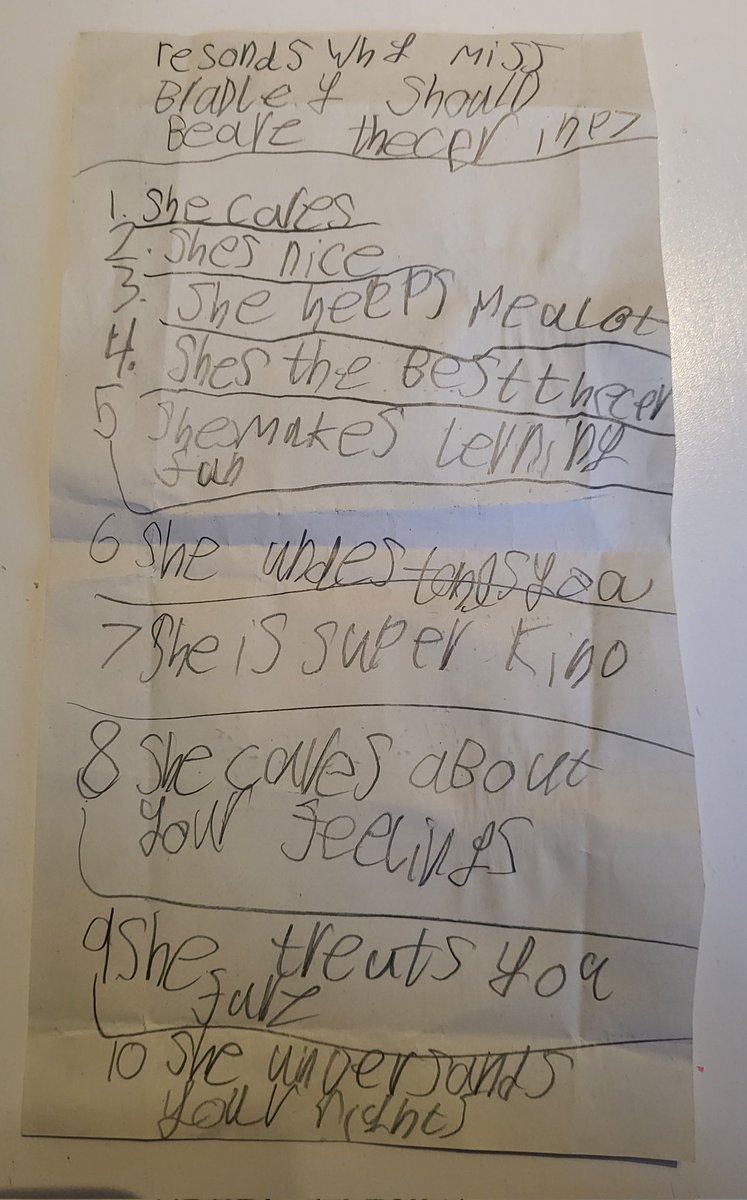 resonds why Miss
Bradley should
Beare thecer in P7
1. She cares
2. Shes nice
3. She heePs Mealot
4. Shes the Best thecer
5 She makes lerning
fun
6 She undestands you
7 She is super kind
8 She cares aBout
your feelings
9 She treats you
fare
10 She undersands
your rights